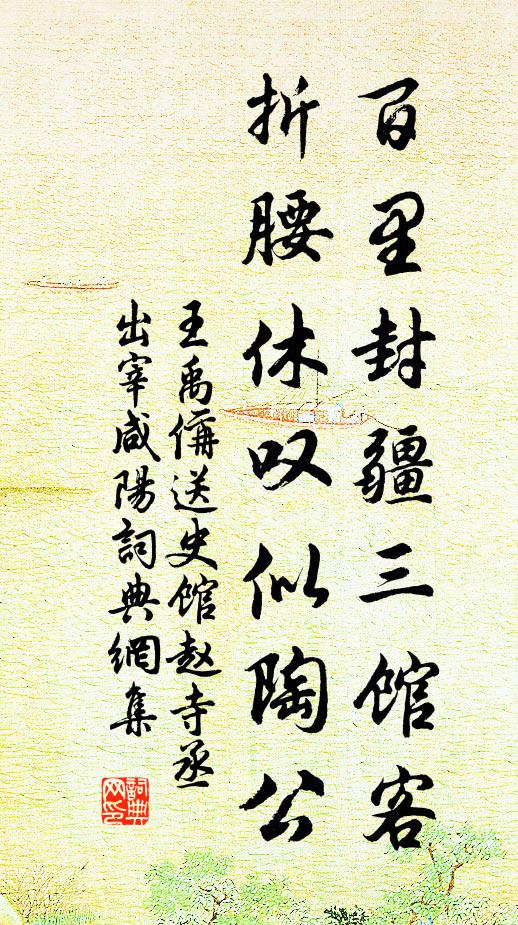 百里封疆三馆客
折腰休叹似陶公
王禹偁送史馆赵寺丞
出宰咸陽詞典網集
詞典
网印